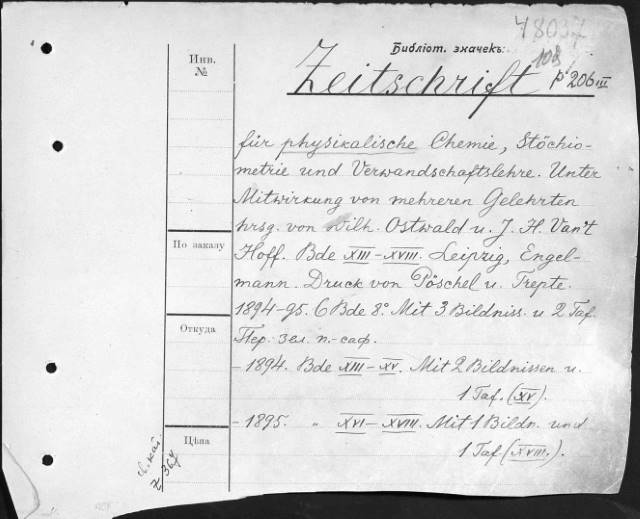 48037
Библіот. значекъ:
108
Инв.
№
Zeitschrift P 206 III
für physikalische Chemie, Stöchio-
metrie und Verwandschaftslehre. Unter
Mitwirkung von mehreren Gelehrten
hrsg. von Wilh. Ostwald u. J. H. Van't
По заказу
Hoff. Bde XIII–XVIII. Leipzig, Engel-
mann. Druck von Pöschel u. Trepte.
1894-95. 6 Bde 8°. Mit 3 Bildniss. u 2 Taf.
Откуда
Пер. зел. п.-саф.
- 1894. Bde XIII–XV. Mit 2 Bildnissen u.
1 Taf. (XV).
- 1895. „ XVI–XVIII. Mit 1 Bildn. und
Цѣна
1 Taf (XVIII.).